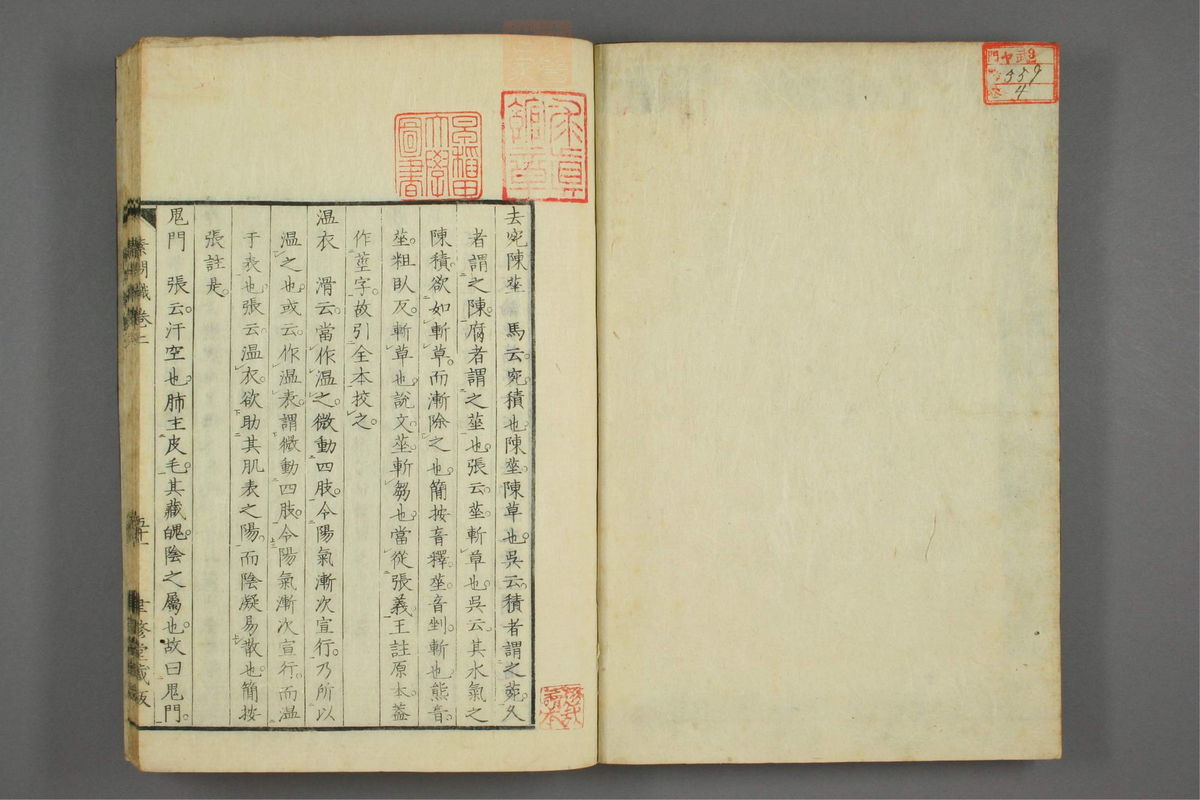 去宛陳莝　馬云宛積也陳莝陳草也吳云積者謂之菀久
者謂之陳腐者謂之莝也張云莝斬草也吳云其水氣之
陳積欲如斬草而漸除之也簡按音釋莝音剉斬也熊音
莝粗臥反斬草也說文莝斬芻也當從張義王註原本蓋
作莖字故引全本挍之
温衣　滑云當作温之微動四肢令陽氣漸次宣行乃所以
温之也或云作温表謂微動四肢令陽氣漸次宣行而温
于表也張云温衣欲助其肌表之陽而陰凝易散也簡按
張註是
鬼門　張云汗空也肺主皮毛其藏魄陰之屬也故曰鬼門
素問識卷二
五十一
聿修堂藏版
早稻田大學圖書
門
359
4